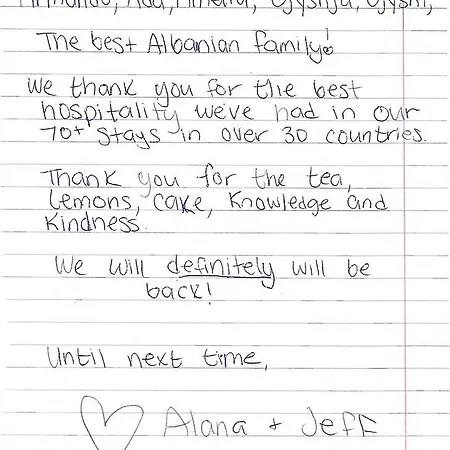 The best Albanian family!
We thank you for the best
hospitality we've had in our
70+ stays in over 30 countries.
Thank you for the tea,
lemons, cake, knowledge and
kindness.
We will definitely will be
back!
Until next time,
Alana + Jeff